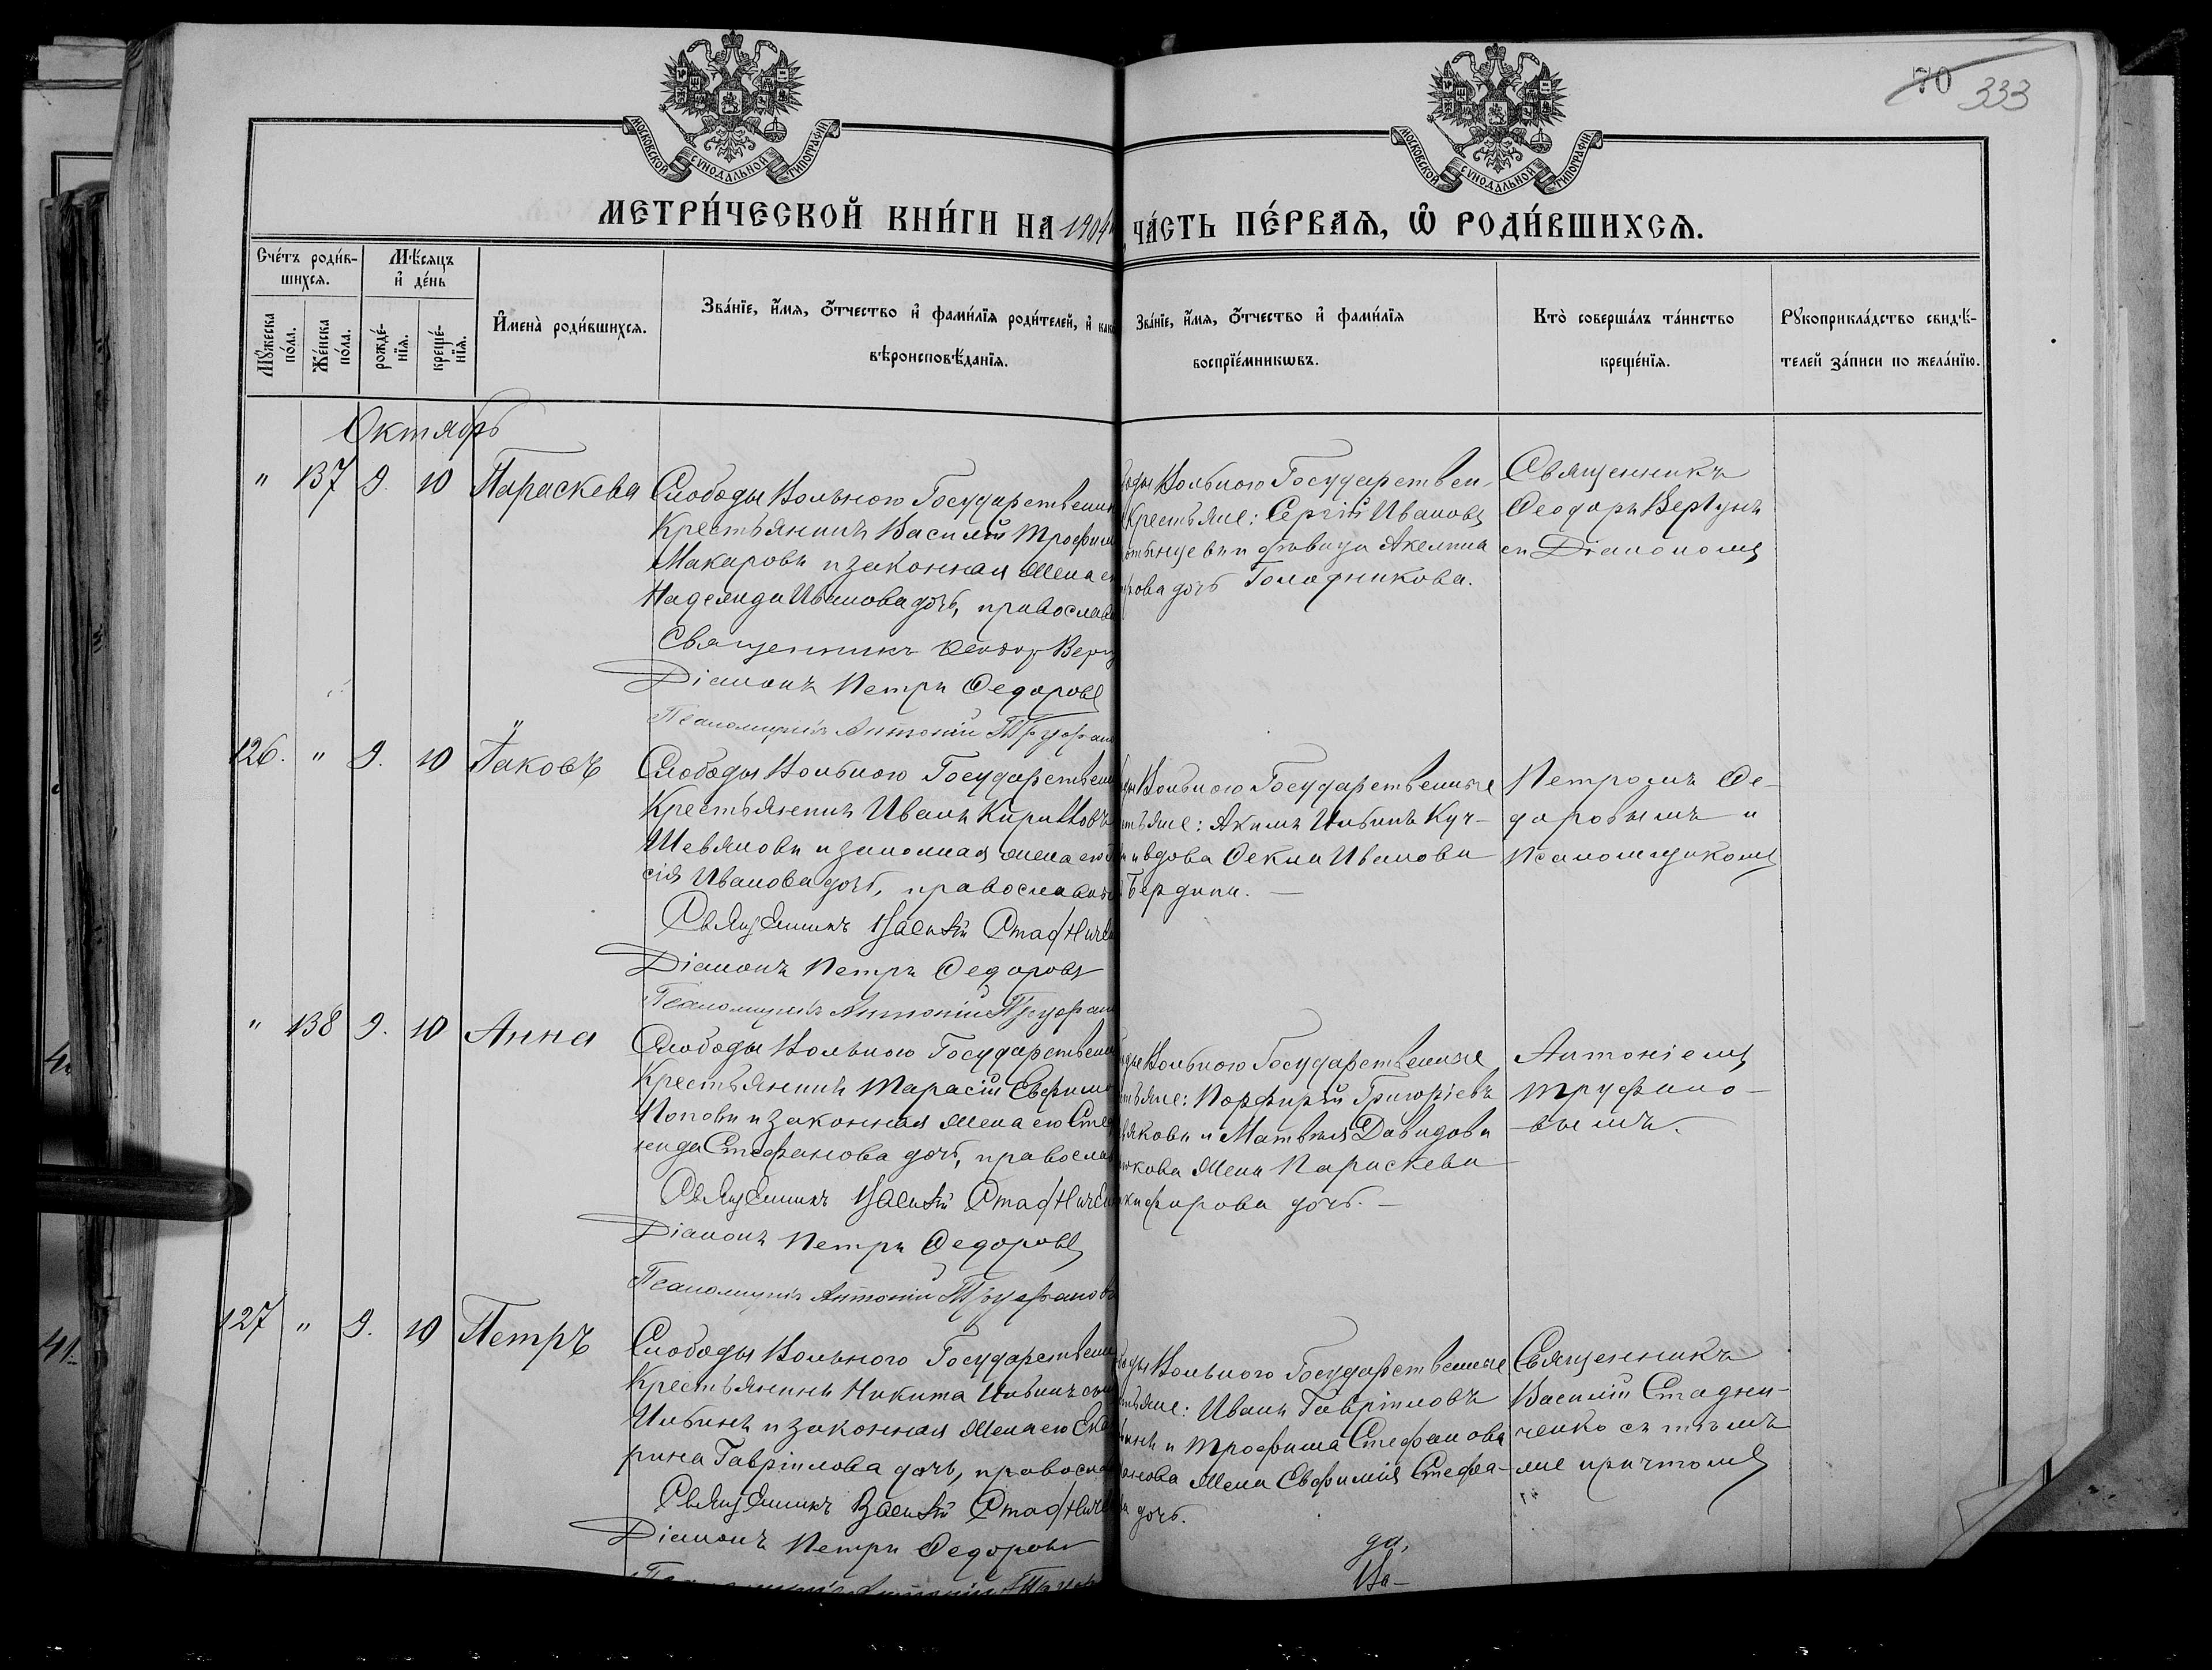 70 333
МОСКОВСКОЙ СУНОДАЛЬНОЙ ТИПОГРАФІИ
МОСКОВСКОЙ СУНОДАЛЬНОЙ ТИПОГРАФІИ
МЕТРИ́ЧЕСКОЙ КНИ́ГИ НА 1904
ЧА́СТЬ ПЕ́РВАЯ, Ѡ РОДИ́ВШИХСѦ.
Сче́тъ роди́в-
шихсѧ.
Мѣ́сѧцъ
и҆ де́нь
Мꙋ́жеска
по́ла.
Же́нска
по́ла.
рожде́-
нїѧ.
креще́-
нїѧ.
И҆мена̀ роди́вшихсѧ.
Зва́нїе, и҆́мѧ, ѻ҆́тчество и҆ фами́лїѧ роди́телей, и҆
вѣроисповѣ́данїѧ.
Зва́нїе, и҆́мѧ, ѻ҆́тчество и҆ фами́лїѧ
воспрїе́мникѡвъ.
Кто̀ соверша́лъ та́инство
креще́нїѧ.
Рꙋкоприкла́дство свидѣ́-
телей за́писи по жела́нїю.
Октябрь
" 137 9. 10 Параскева
Слободы Вольного Государствен
Крестьянинъ Василій Трофим
Макаровъ и законная жена е
Надежда Иванова дочь, православ
Священникъ Феодор Верг
Діаконъ Петръ Федоровъ
Псаломщикъ Антоній Труфан
оды Вольного Государствен-
Крестьяне: Сергій Ивановъ
и дѣвица Акелина
рова дочь Голодникова.
Священникъ
Феодоръ Вергунъ
съ Діакономъ
126. " 9. 10 Іаковъ
Слободы Вольного Государствен
Крестьянинъ Иванъ Кирилловъ
Шевляковъ и законная жена его
сія Иванова дочь, православны
Священникъ Василій Стадниченк
Діаконъ Петръ Федоровъ
Псаломщикъ Антоній Труфан
ды Вольного Государственные
стьяне: Акимъ Ильинъ Куч-
и вдова Фекла Иванова
Бердина. —
Петромъ Фе-
доровымъ и
Псаломщикомъ
" 138 9. 10 Анна
Слободы Вольного Государствен
Крестьянинъ Тарасій Евфимо
Поповъ и законная жена его Сте
нида Стефанова дочь, православ
Священникъ Василій Стадничен
Діаконъ Петръ Федоровъ
Псаломщикъ Антоній Труфановъ
ды Вольного Государственные
стьяне: Порфирій Григорьевъ
яковъ и Матвѣя Давидова
кова жена Параскева
кифорова дочь. —
Антоніемъ
Труфано-
вымъ.
127 " 9. 10 Петръ
Слободы Вольного Государствен
Крестьянинъ Никита Ильинъ сынъ
Ильинъ и законная жена его Ека
рина Гавріилова дочь, православ
Священникъ Василій Стадничен
Діаконъ Петръ Федоровъ
оды Вольного Государственные
стьяне: Иванъ Гавріиловъ
и Трофима Стефанова
нова жена Евфимія Стефа-
а дочь.
Священникъ
Василій Стадни-
ченко съ тѣмъ
же причтомъ
да,
Ва-
4
41.